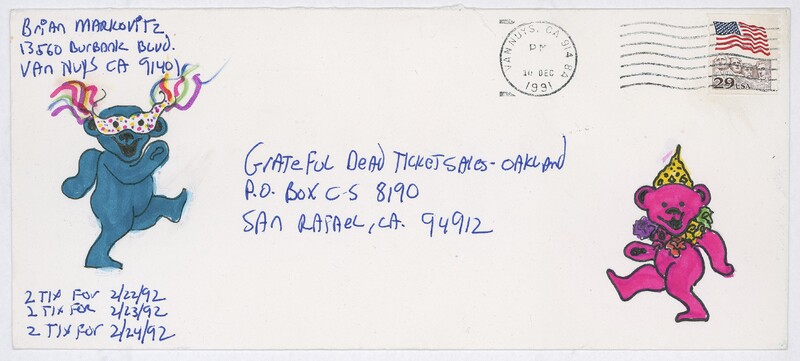 Brian Markovitz
13560 Burbank Blvd.
Van Nuys CA 91401
VAN NUYS, CA 914 8A
PM
10 DEC
1991
29 USA
Grateful Dead Ticket Sales - Oakland
P.O. Box C-S 8190
San Rafael, CA. 94912
2 Tix for 2/22/92
2 Tix for 2/23/92
2 Tix for 2/24/92